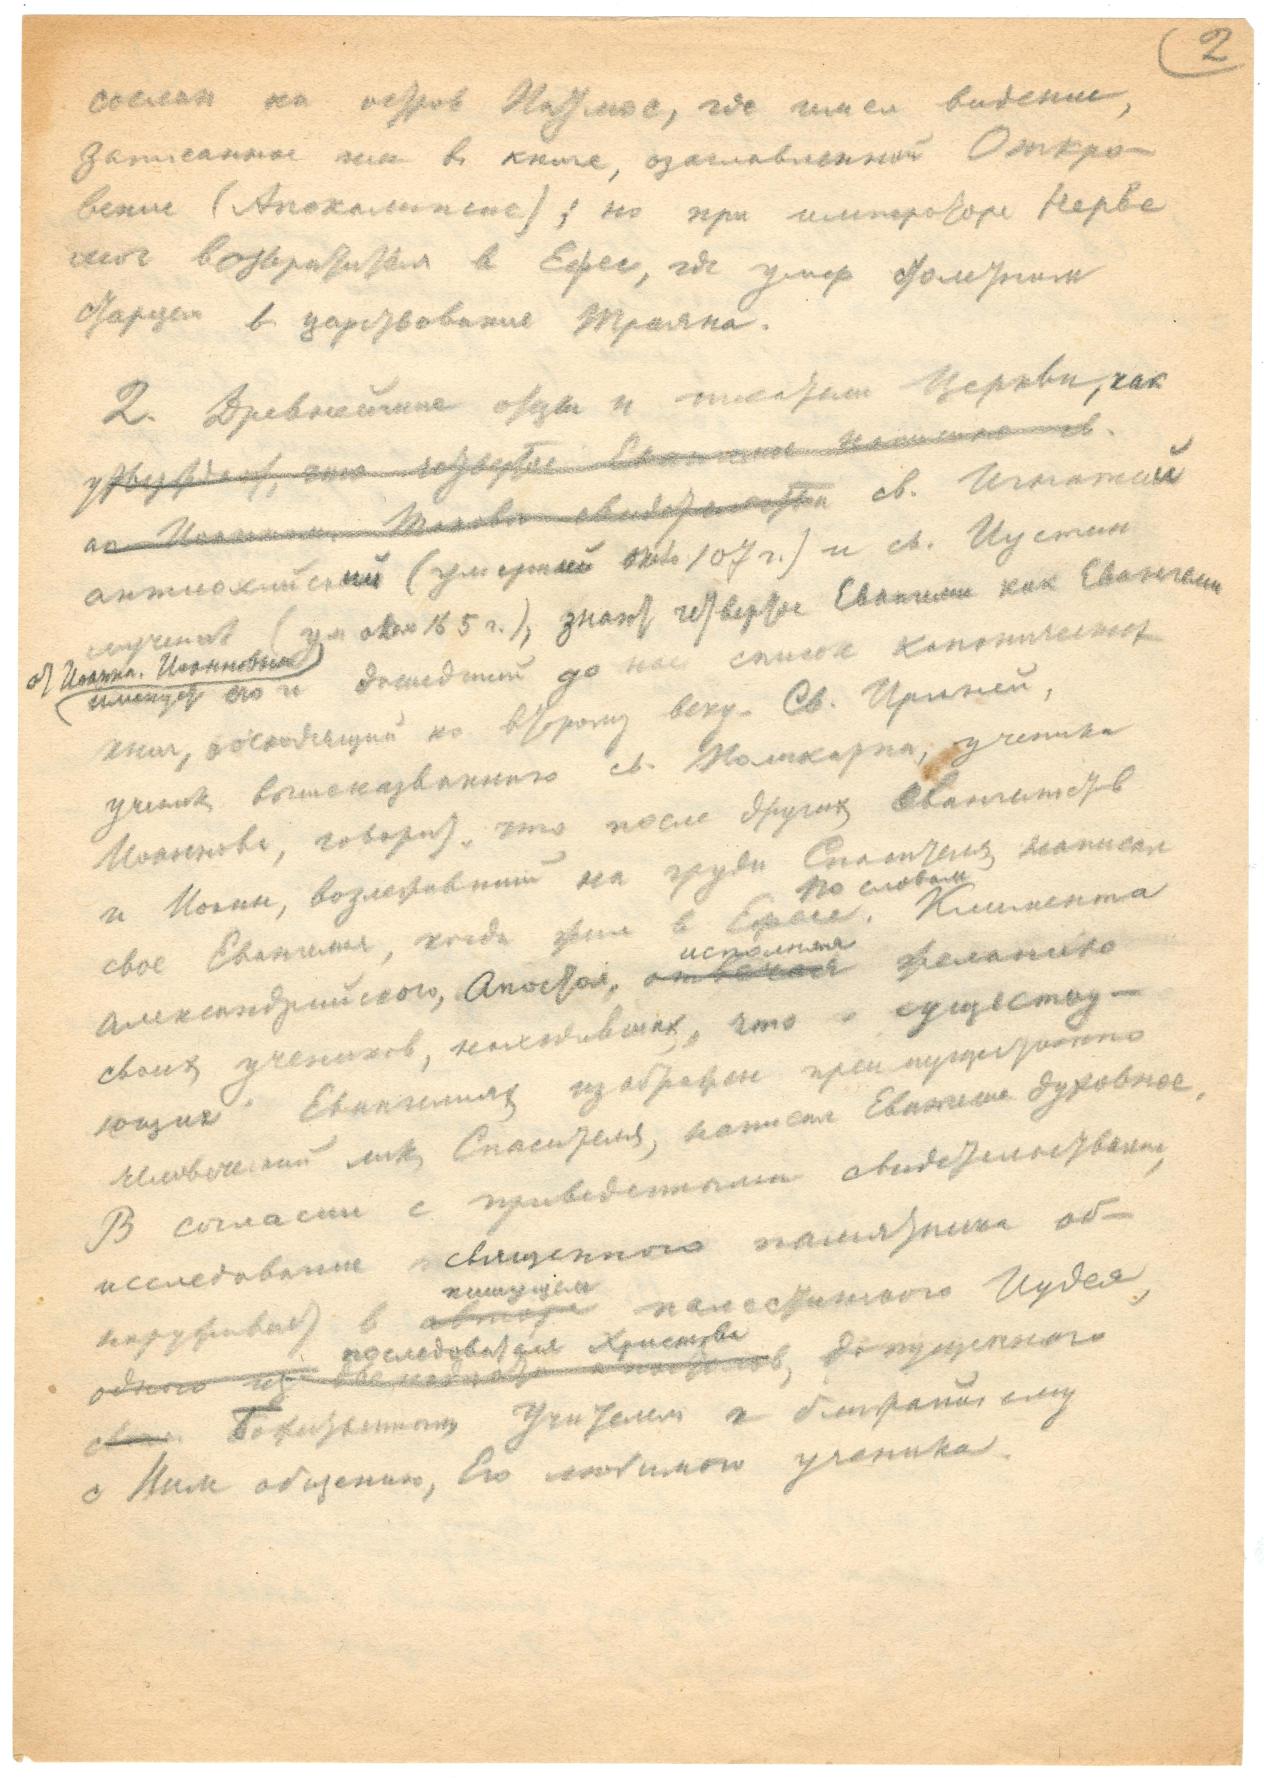 2
сослан на остров Патмос, где имел видение,
записанное им в книге, озаглавленной Откро-
вение (Апокалипсис); но при императоре Нерве
мог возвратиться в Ефес, где умер столетним
старцем в царствование Траяна.
2. Древнейшие отцы и писатели Церкви, как
утверждают, что четвертое Евангелие написано св.
ап Иоанном. Таковы свидетельства св. Игнатий
антиохийский (умерший около 107 г.) и св. Иустин
мученик (ум около 165 г.), знают четвертое Евангелие как Евангелие
от Иоанна. Иоанновым
именует его и дошедший до нас список канонических
книг, восходящий ко второму веку. Св. Ириней,
ученик вышеназванного св. Поликарпа, ученика
Иоаннова, говорит, что после других евангелистов
и Иоанн, возлежавший на груди Спасителя, написал
свое Евангелие, когда жил в Ефесе. По словам Климента
Александрийского, Апостол, исполняя отвечая желанию
своих учеников, находивших, что в существу-
ющих Евангелиях изображен преимущественно
человеческий лик Спасителя, написал Евангелие духовное.
В согласии с приведенными свидетельствами,
исследование священного памятника об-
наруживает в пишущем авторе палестинского Иудея,
последователя Христова
одного из двенадцати апостолов, допущенного
своим Божественным Учителем к ближайшему
с Ним общению, Его любимого ученика.